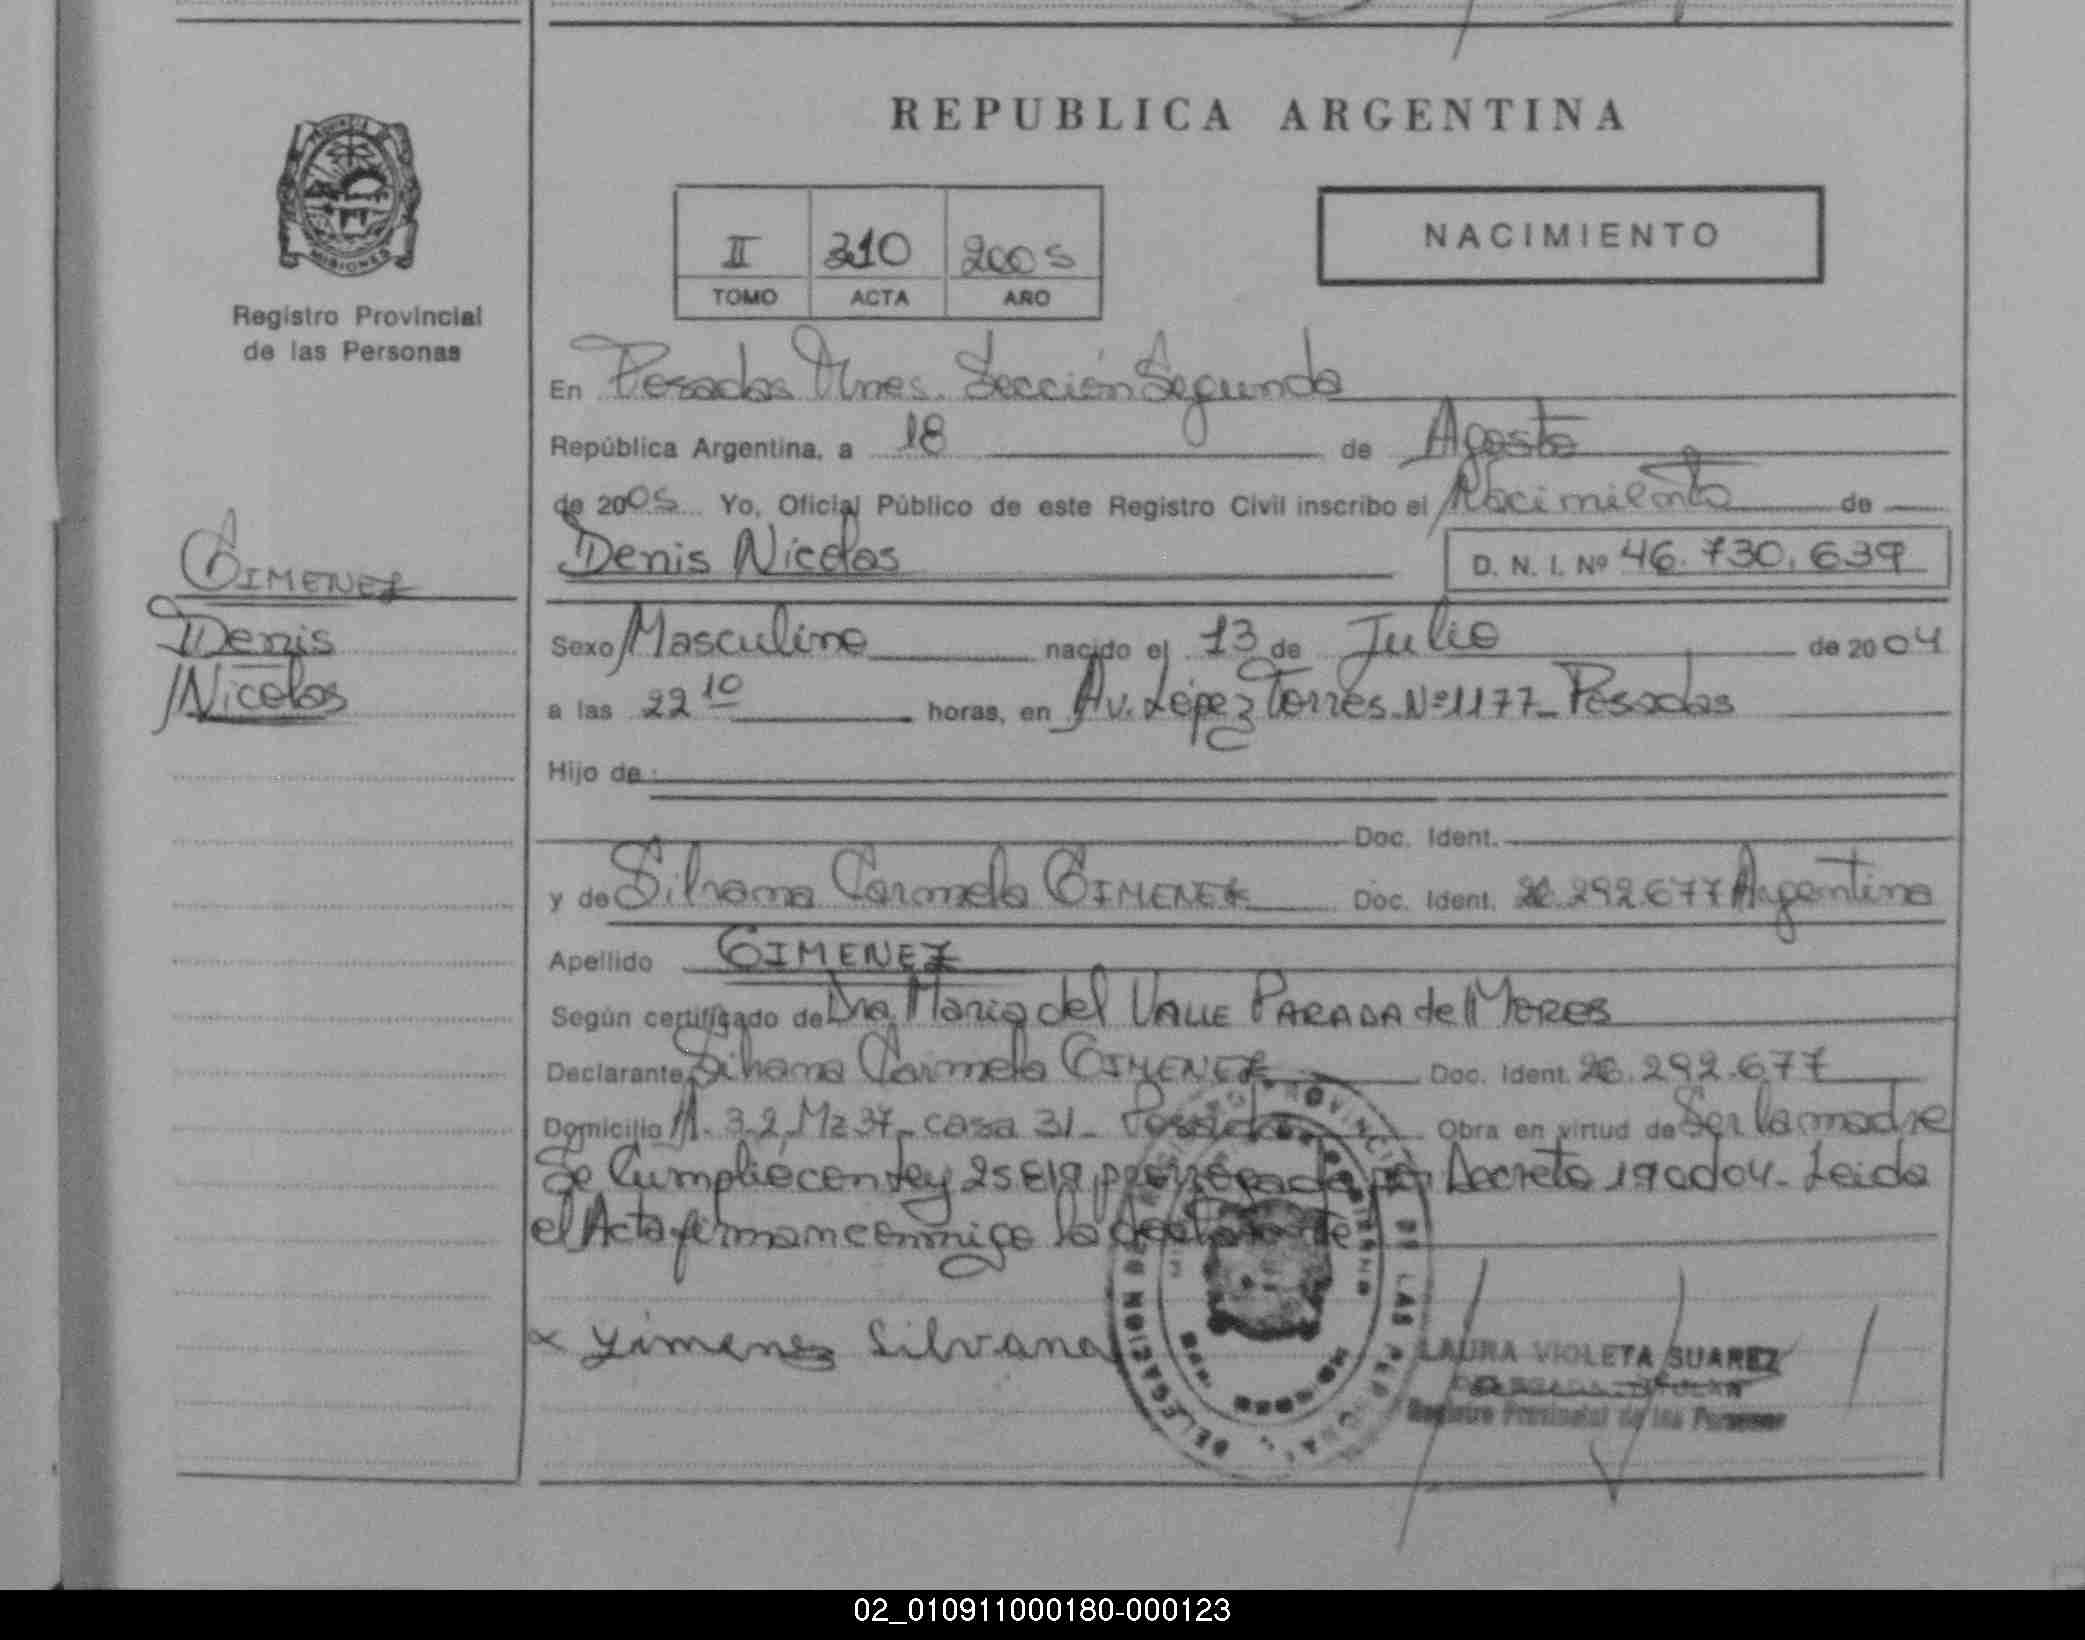 REPUBLICA ARGENTINA
NACIMIENTO
II 310 2005
TOMO ACTA AÑO
PROVINCIA DE
MISIONES
Registro Provincial
de las Personas
GIMENEZ
Denis
Nicolas
En Posadas Mnes. Sección Segunda
República Argentina, a 18 de Agosto
de 2005 Yo, Oficial Público de este Registro Civil inscribo el Nacimiento de
Denis Nicolas D. N. I. Nº 46.730.639
Sexo Masculino nacido el 13 de Julio de 2004
a las 22 10 horas, en Av. López Torres Nº 1177 - Posadas
Hijo de
Doc. Ident.
y de Silvana Carmela GIMENEZ Doc. Ident. 26.292.677 Argentina
Apellido GIMENEZ
Según certificado de Dra. Maria del VALLE PARADA de MORES
Declarante Silvana Carmela GIMENEZ Doc. Ident. 26.292.677
Domicilio 32 Mz 37 - casa 31 - Posadas Obra en virtud de Ser la madre
Se Cumplió con Ley 25819 prorrogada por Decreto 190d04 - Leida
el Acta firman conmigo la declarante
x Yimenez Silvana
LAURA VIOLETA SUAREZ
Registro Provincial de las Personas
02_010911000180-000123